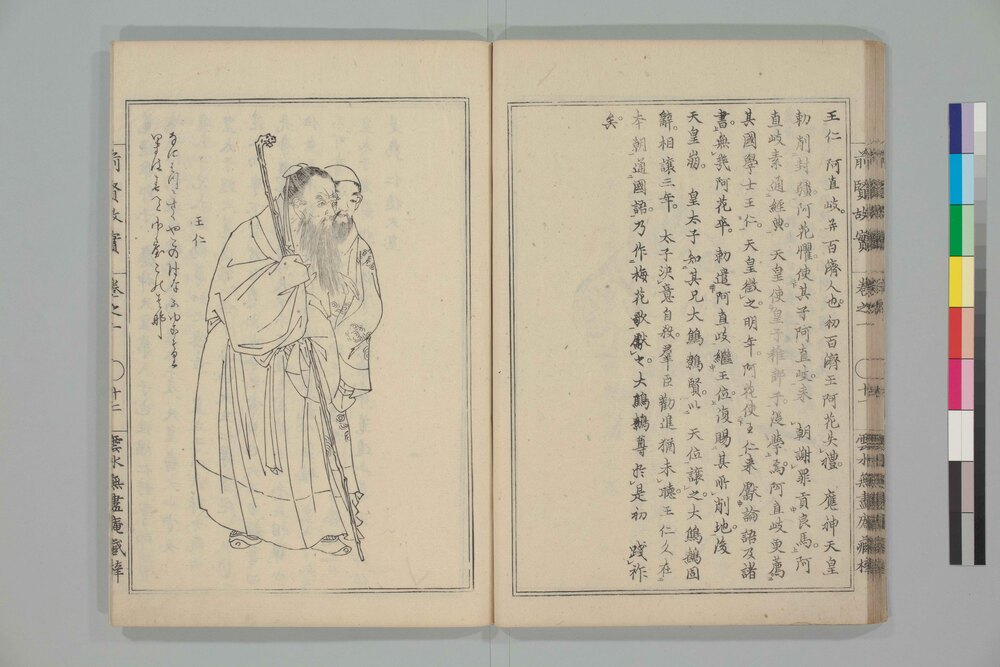 王仁 阿直岐。並百濟人也。初百濟王阿花失禮。 應神天皇
勅削封疆。阿花懼。使其子阿直岐來 朝謝罪貢良馬。阿
直岐素通經典。 天皇使皇子稚郎子從學焉。阿直岐更薦
其國學士王仁。天皇徵之。明年。阿花使王仁來獻論語及諸
書。無幾阿花卒。 勅遣阿直岐繼王位。復賜其所削地。後
天皇崩。 皇太子知其兄大鷦鷯賢。以 天位讓之。大鷦鷯固
辭。相讓三年。 太子決意自殺。羣臣勸進猶未聽。王仁久在
本朝通國語。乃作梅花歌獻之大鷦鷯尊。於是初 踐祚
矣。
前賢故實 卷之一 十一 雲水無盡庵藏梓
王仁
なにはつにさくやこのはなふゆこもり
いまははるへとさくやこのはな
前賢故實 卷之一 十二 雲水無盡庵藏梓